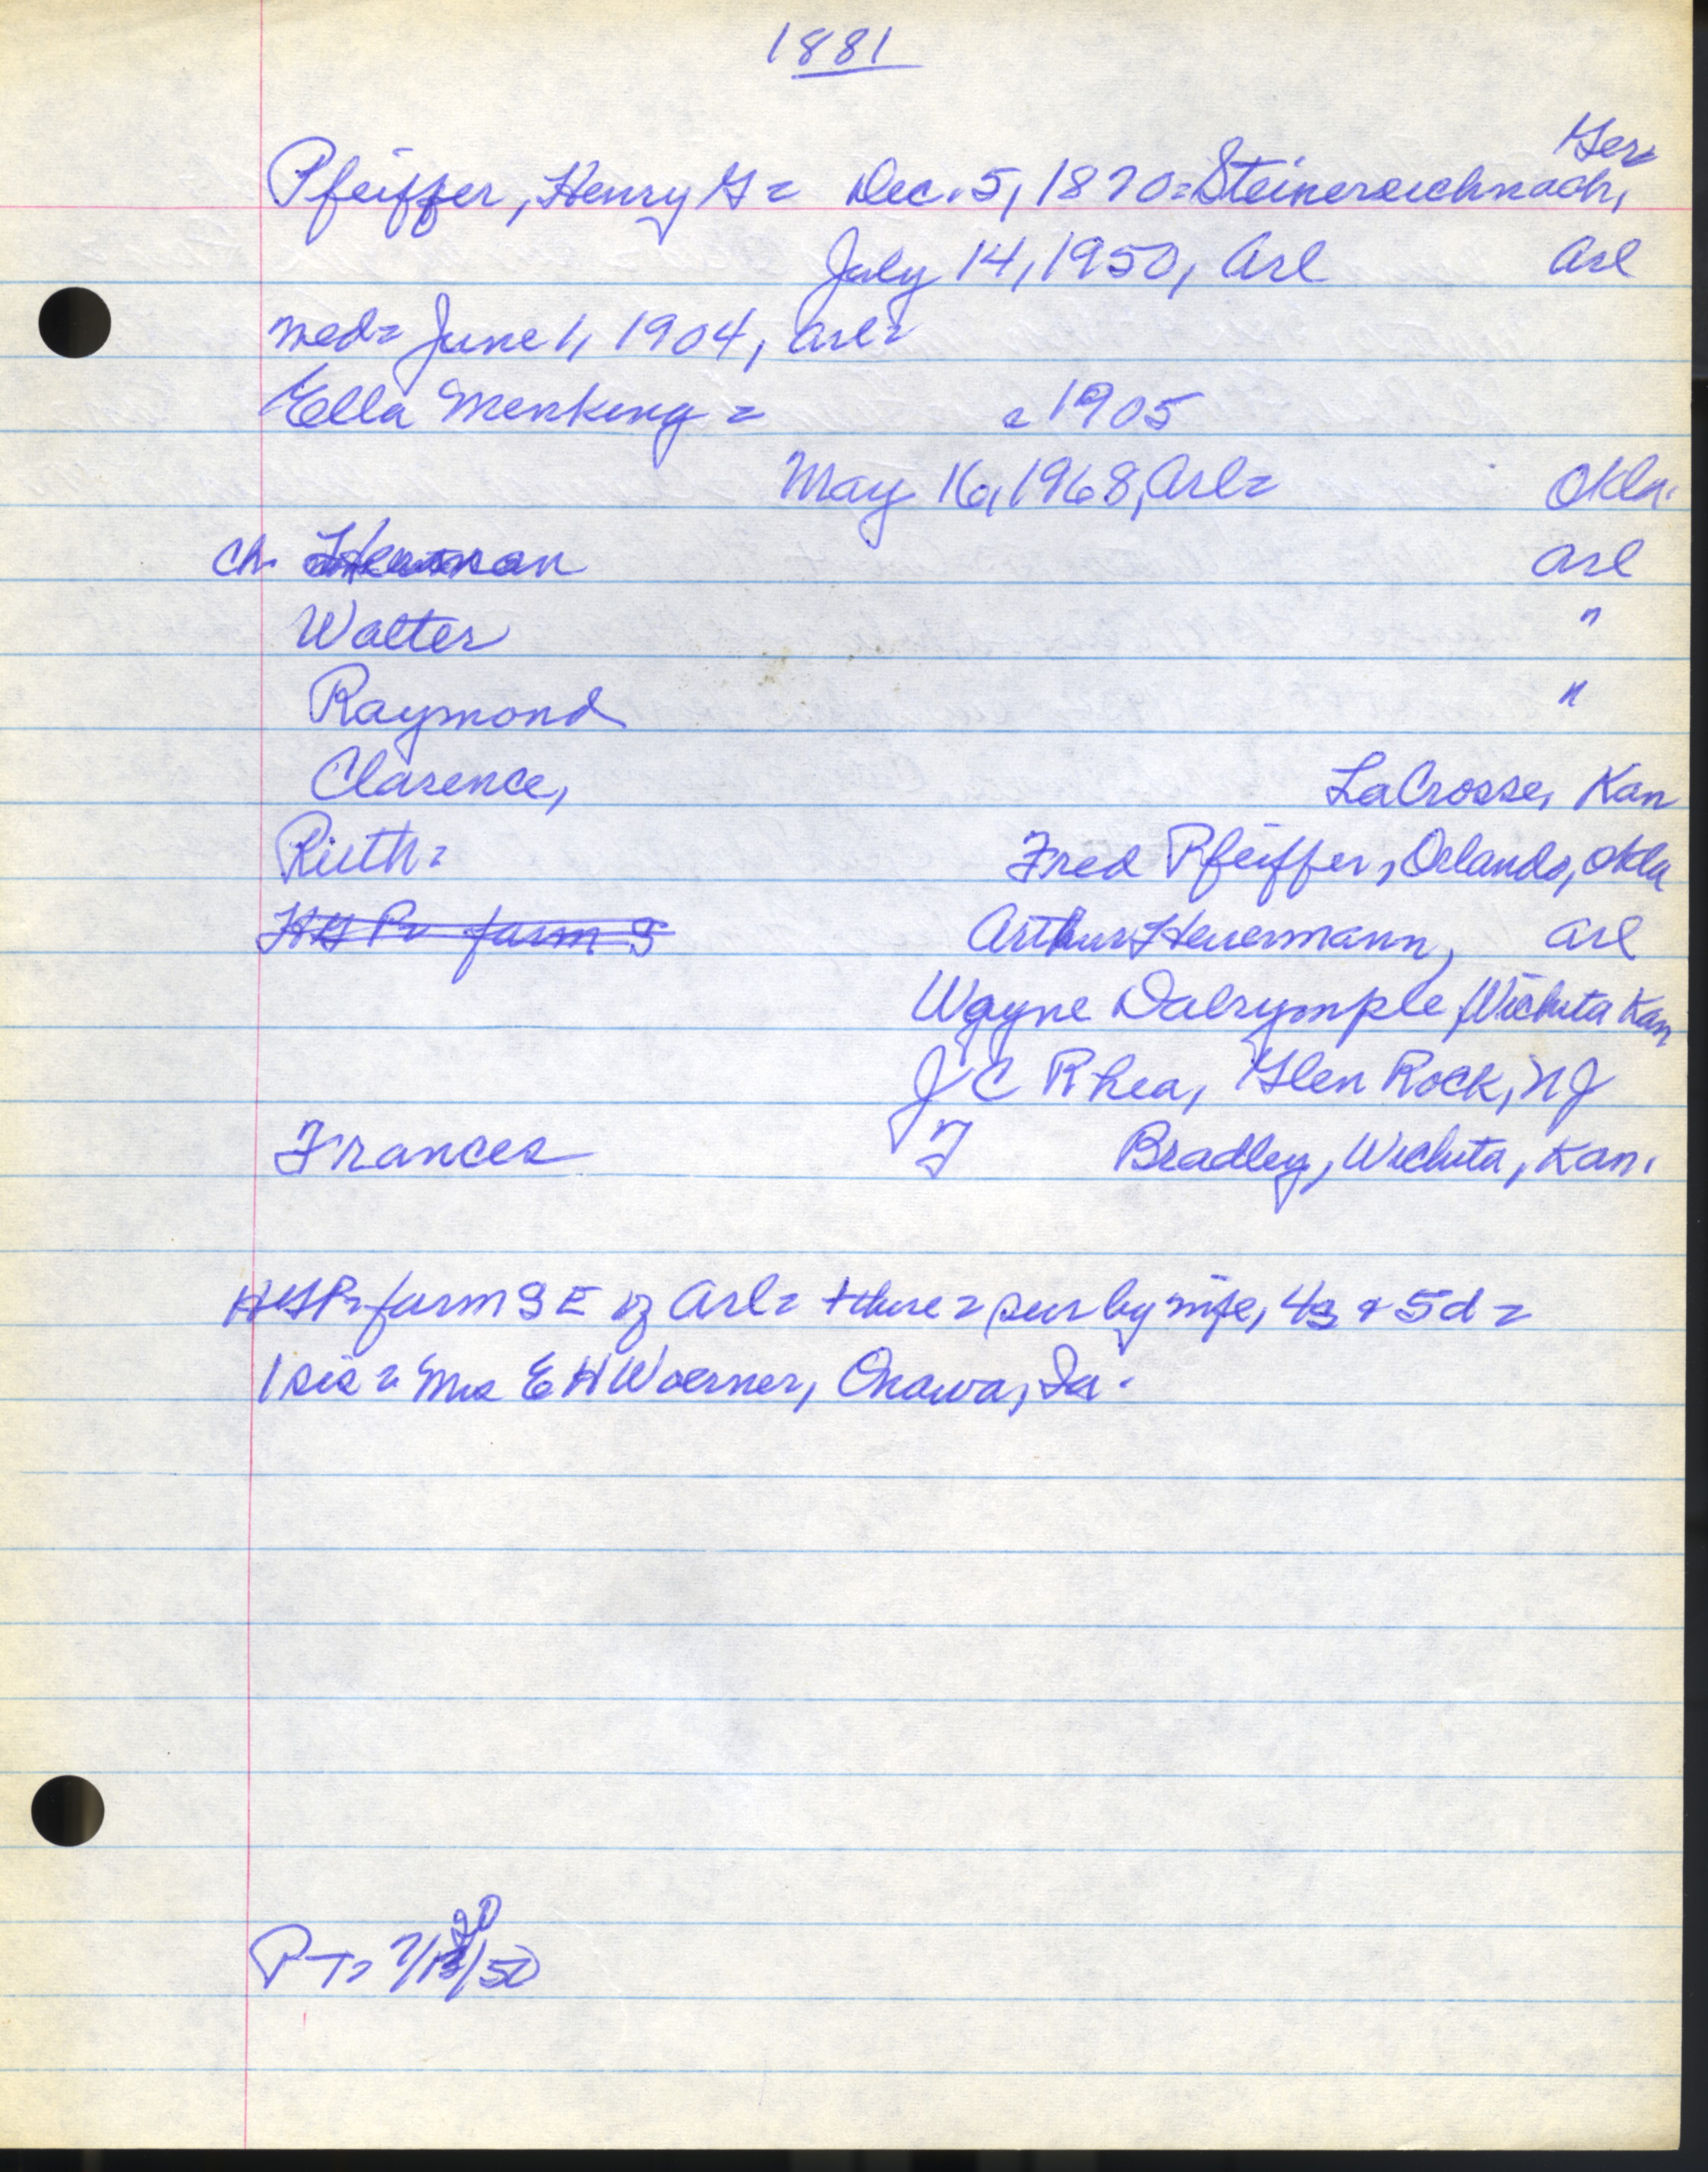 1881
Ger
Pfeiffer, Henry G = Dec. 5, 1870 = Steinereichnach,
July 14, 1950, Arl Arl
med = June 1, 1904, Arl =
Ella Menking = = 1905
May 16, 1968, Arl = Okla.
Ch. Herman Arl
Walter "
Raymond "
Clarence, LaCrosse, Kan
Ruth = Fred Pfeiffer, Orlando, Okla
HG Pr farm S Arthur Heuermann, Arl
Wayne Dalrymple, Wichita Kan
J C Rhea, Glen Rock, NJ
Frances F Bradley, Wichita, Kan.
HGPr farm SE of Arl = + there = sur by wife, 4s & 5d =
1 sis = Mrs E H Woerner, Onawa, Ia.
20
PT = 7/ /50